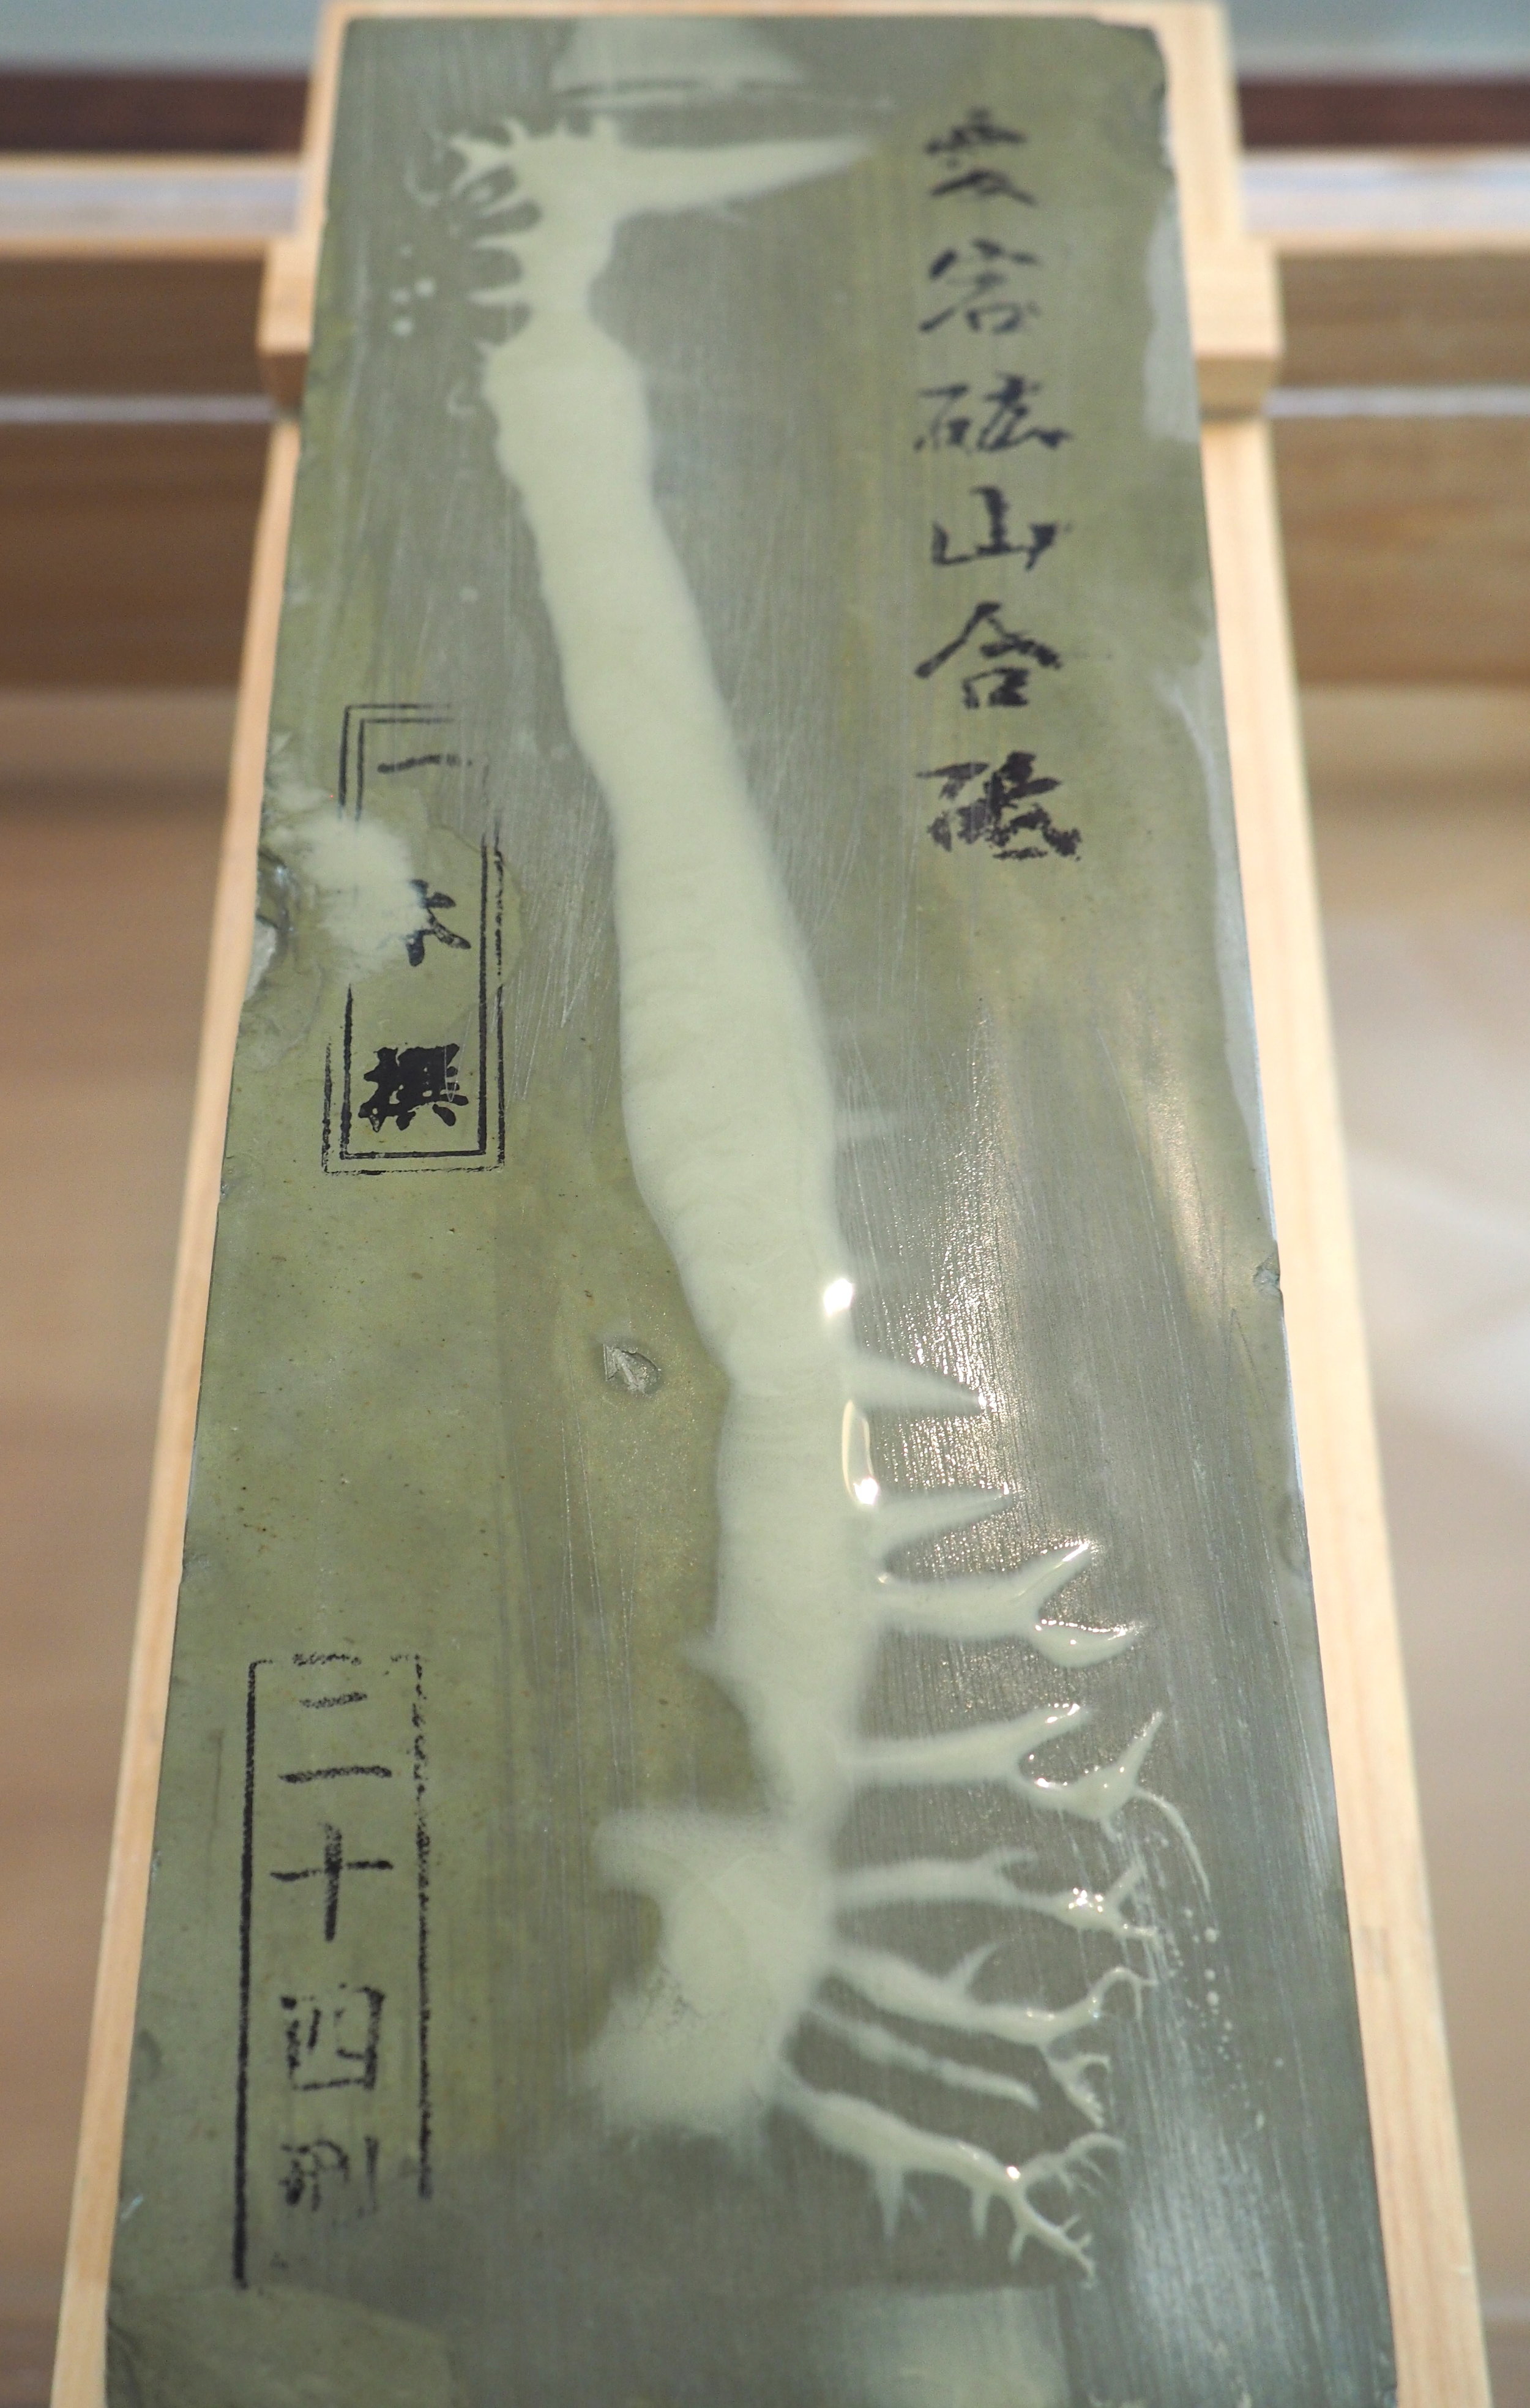 愛宕砿山合砥
一本撰
二十四型